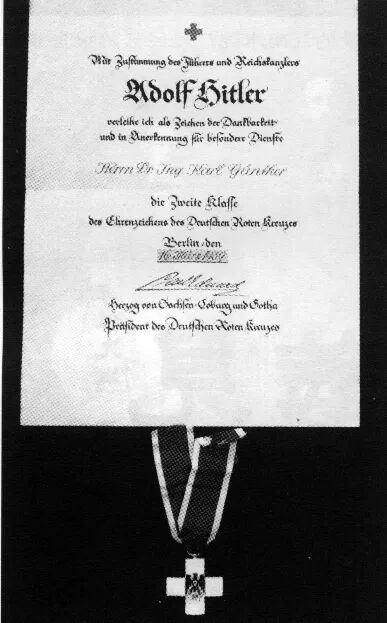 Mit Zustimmung des Führers und Reichskanzlers
Adolf Hitler
verleihe ich als Zeichen der Dankbarkeit
und in Anerkennung für besondere Dienste
Herrn Dr Ing Karl Günther
die Zweite Klasse
des Ehrenzeichens des Deutschen Roten Kreuzes
Berlin, den
Herzog von Sachsen-Coburg und Gotha
Präsident des Deutschen Roten Kreuzes